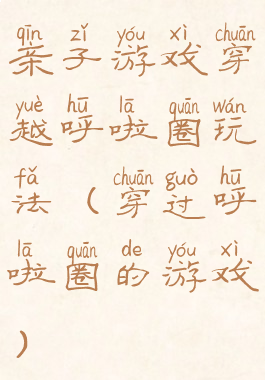 qīn zǐ yóu xì chuān
亲子游戏穿
yuè hū lā quān wán
越呼啦圈玩
fǎ chuān guò hū
法(穿过呼
lā quān de yóu xì
啦圈的游戏
)